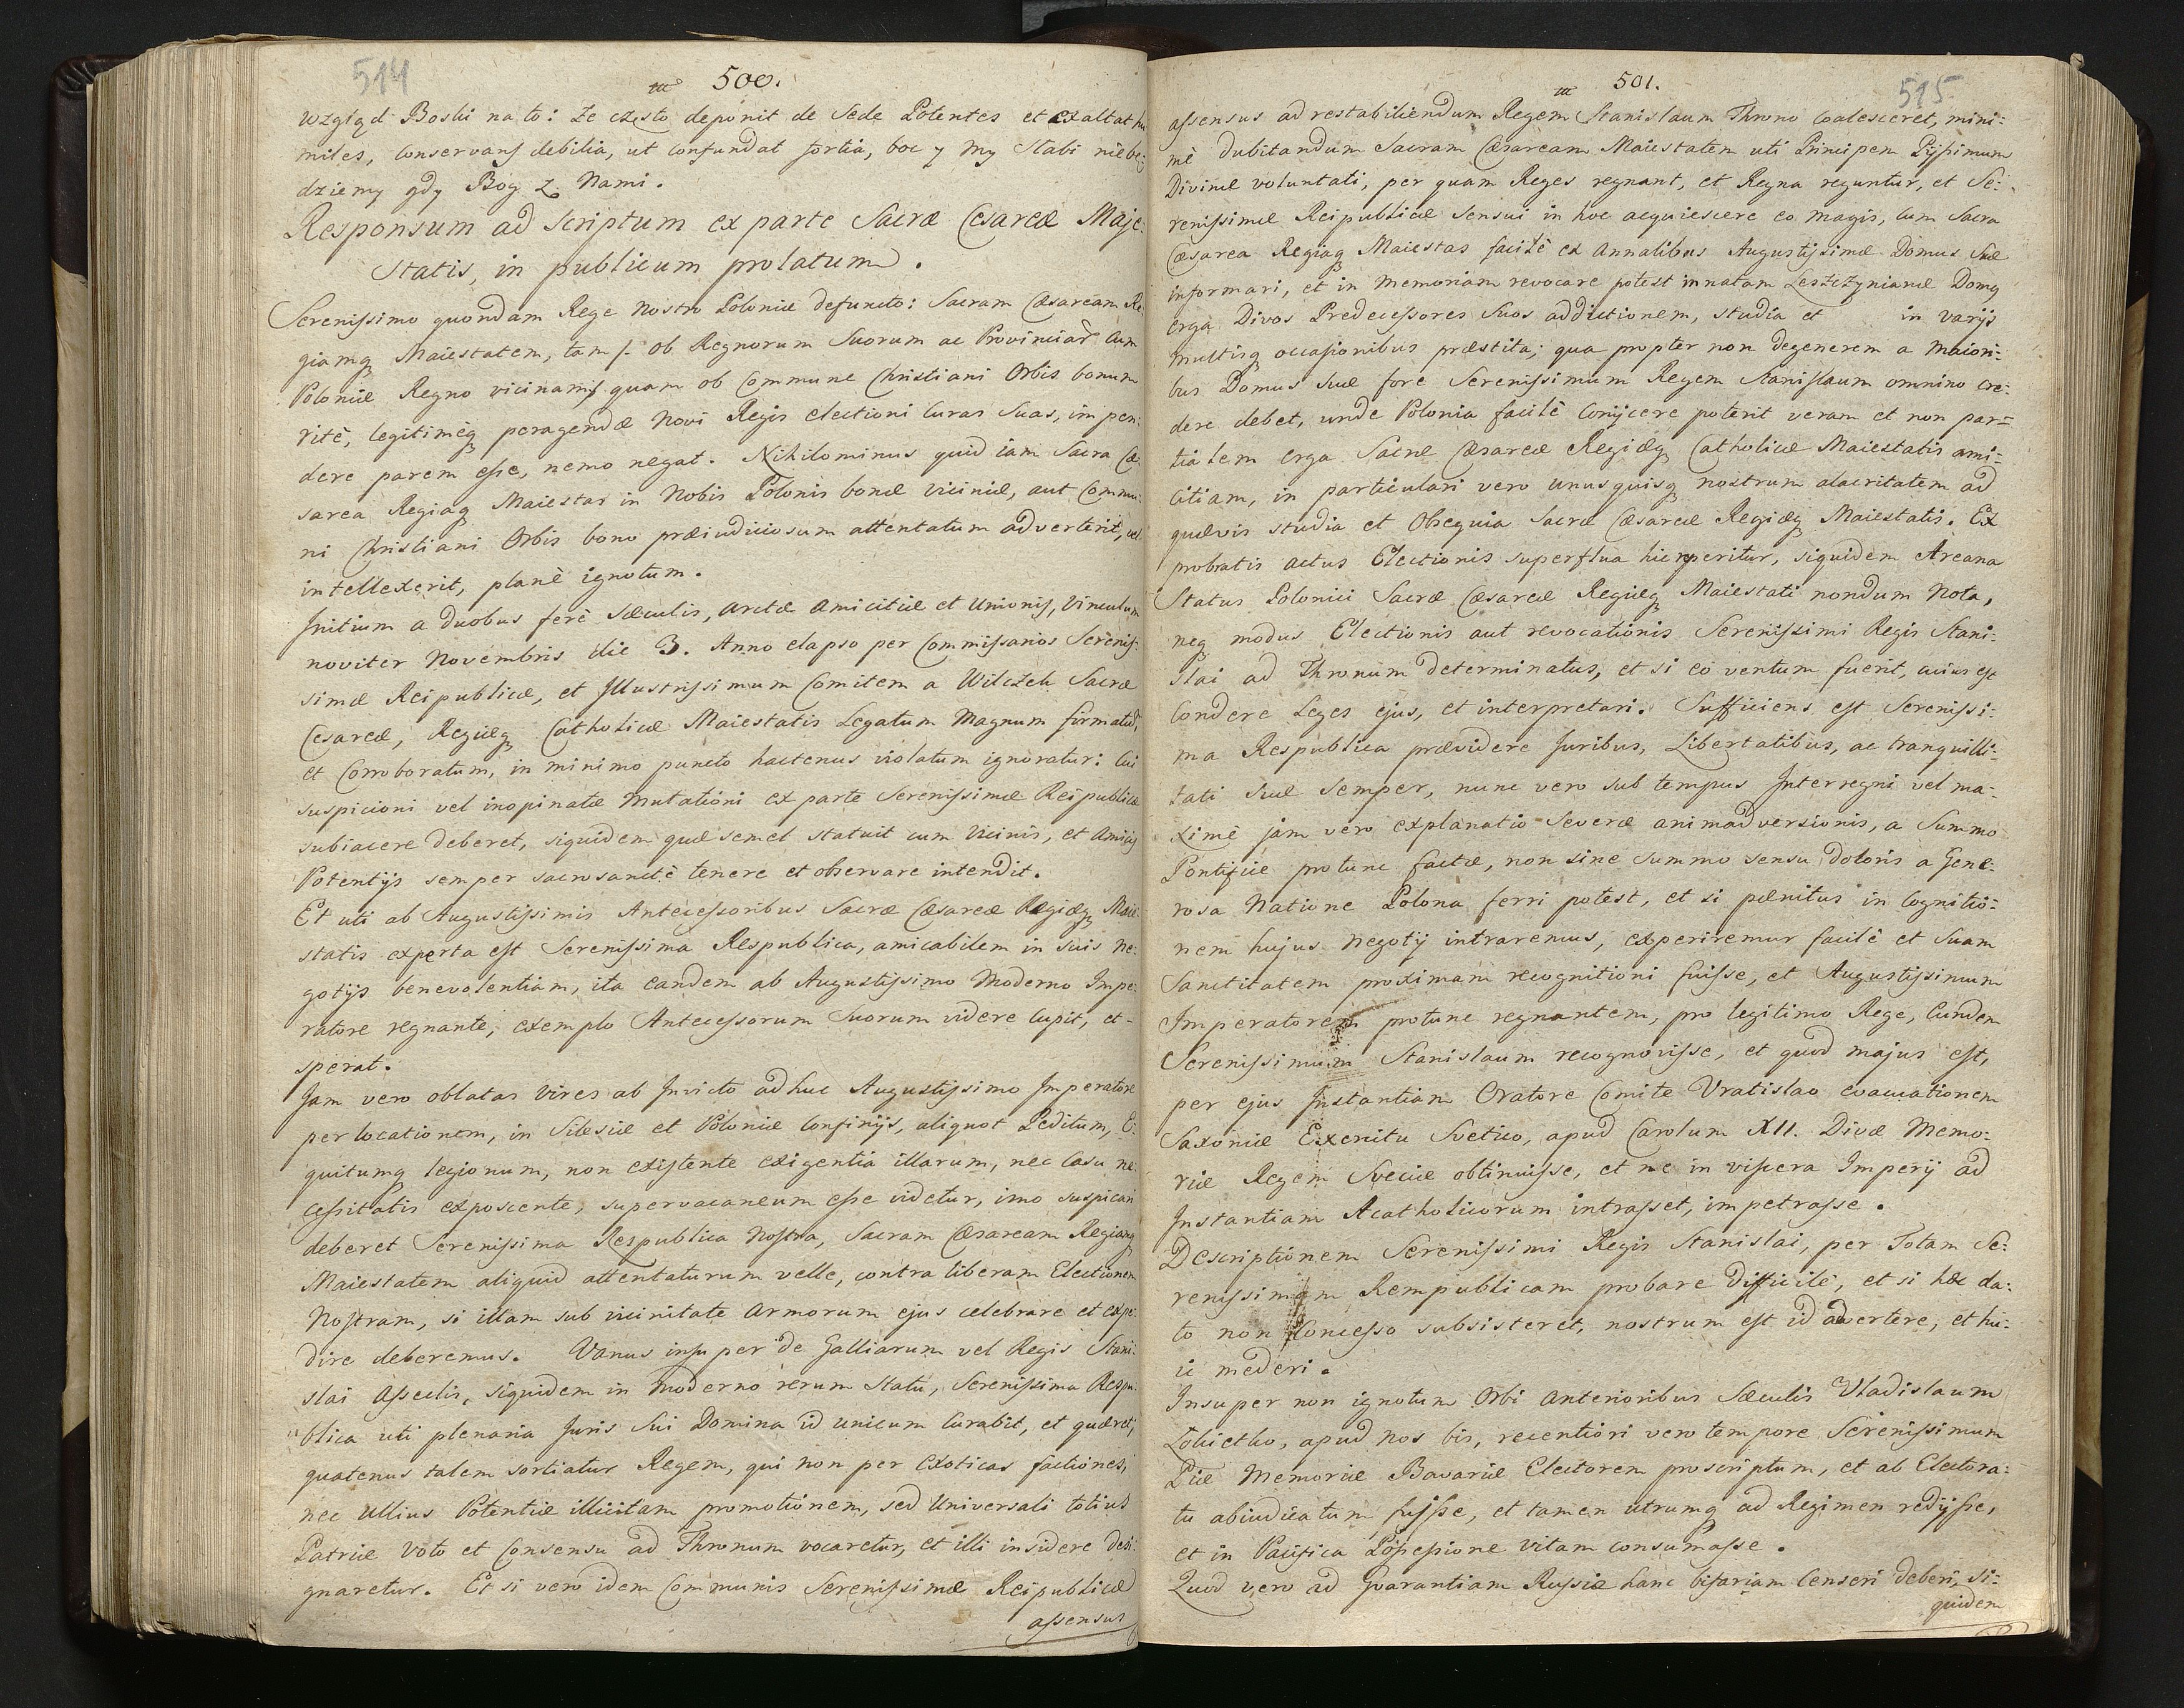 514
500.
wzgląd Boski na to: że często deponit de Sede Potentes et exaltat hu
miles, conservans debilia, ut confundat fortia, boc y My Słabi niebę:
dziemy gdy Bog z Nami.
Responsum ad scriptum ex parte Sacræ Cesareæ Maje:
statis, in publicum prolatum.
Serenissimo quondam Rege Nostro Poloniæ defuncto: Sacram Cæsaream Re
giamq Maiestatem, tam ob Regnorum Suorum ac Provinciar cum
Poloniæ Regno vicinam quam ob Commune Christiani Orbis bonum
ritè, legitimèq peragendæ Novi Regis electioni curas Suas, impen:
dere parem esse, nemo negat. Nihilominus quid iam Sacra Cæ:
sarea Regiaq Maiestas in Nobis Polonis bonæ viciniæ, aut Commu
ni Christiani Orbis bono præiudiciosum attentatum adverterit, vel
intellexerit, planè ignotum.
Initium a duobus ferè Sæculis, arctæ Amicitiæ et Unionis, vinculum
noviter Novembris die 3. Anno elapso per Commissarios Serenis:
simæ Reipublicæ, et Illustrissimum Comitem a Wilczek Sacræ
Cesareæ, Regiæq Catholicæ Maiestatis Legatum Magnum firmatum,
et Corroboratum, in minimo puncto hactenus violatum ignoratur: Cui
suspicioni vel inopinatæ mutationi ex parte Serenissimæ Reipublicæ
subiacere deberet, siquidem quæ semel statuit cum Vicinis, et Amicis
Potentijs semper sacrosanctè tenere et observare intendit.
Et uti ab Augustissimis Antecessoribus Sacræ Cæsareæ Regiæq Maie:
statis experta est Serenissima Respublica, amicabilem in suis ne:
gotijs benevolentiam, ita eandem ab Augustissimo Moderno Impe:
ratore regnante, exemplo Antecessorum Suorum videre cupit, et
sperat.
Jam vero oblatas vires ab Invicto adhuc Augustissimo Imperatore
per locationem, in Silesiæ et Poloniæ Confinijs, aliquot Peditum, E:
quitumq legionum, non existente exigentia illarum, nec casu ne:
cessitatis exposcente, supervacaneum esse videtur, imo suspicari
deberet Serenissima Respublica Nostra, Sacram Cæsaream Regiamq
Maiestatem aliquid attentaturum velle, contra liberam Electionem
Nostram, si illam sub vicinitate armorum ejus celebrare et expe:
dire deberemus. Vanus insuper de Galliarum vel Regis Stani:
slai asseclis, siquidem in moderno rerum statu, Serenissima Respu:
blica uti plenaria Juris Sui Domina id unicum curabit, et quæret,
quatenus talem sortiatur Regem, qui non per Exoticas factiones,
nec ullius Potentiæ illicitam promotionem, sed Universali totius
Patriæ voto et Consensu ad Thronum vocaretur, et illi insidere desi:
gnaretur. Et si vero idem Communis Serenissimæ Reipublicæ
assensus
501.
515
assensus ad restabiliendum Regem Stanislaum Throno coalesceret, mini:
mè dubitandum Sacram Cæsaream Maiestatem uti Principem Pijssimum
Divinæ voluntati, per quam Reges regnant, et Regna reguntur, et Se:
renissimæ Reipublicæ sensui in hoc acquiescere eo magis, cum Sacra
Cæsarea Regiaq Maiestas facilè ex Annalibus Augustissimæ Domus Suæ
informari, et in memoriam revocare potest innatam Leszczynianæ Domq
erga Divos Predecessores Suos addictionem, studia et in varijs
multisq occasionibus præstita; qua propter non degenerem a maiori:
bus Domus suæ fore Serenissimum Regem Stanislaum omnino cre:
dere debet, unde Polonia facilè conijcere poterit veram et non par:
tialem erga Sacræ Cæsareæ Regiæq Catholicæ Maiestatis ami:
citiam, in particulari vero unusquisq nostrum alacritatem ad
quævis studia et Obsequia Sacræ Cæsareæ Regiæq Maiestatis. Ex
probratis actus Electionis superflua hic reperitur, siquidem Arcana
Status Polonici Sacræ Cæsareæ Regiæq Maiestati nondum Nota,
neq modus Electionis aut revocationis Serenissimi Regis Stani:
slai ad Thronum determinatus, et si eo ventum fuerit, cuius est
condere Leges ejus, et interpretari. Sufficiens est Serenissi:
ma Respublica prævidere Juribus, Libertatibus, ac tranquilli:
tati suæ semper, nunc vero sub tempus Interregni vel ma:
ximè jam vero explanatio Severæ animadversionis, a Summo
Pontifice protunc factæ, non sine summo sensu doloris a Gene:
rosa Natione Polona ferri potest, et si pænitus in cognitio:
nem hujus negotij intraremus, experiremur facilè et Suam
Sanctitatem proximam recognitioni fuisse, et Augustissimum
Imperatorem protunc regnantem, pro legitimo Rege, Eundem
Serenissimum Stanislaum recognovisse, et quod majus est,
per ejus Instantiam Oratore Comite Vratislao evacuationem
Saxoniæ Exercitu Svetico, apud Carolum XII. Divæ Memo:
riæ Regem Sveciæ obtinuisse, et ne in viscera Imperij ad
Instantiam Acatholicorum intrasset, impetrasse.
Descriptionem Serenissimi Regis Stanislai, per Totam Se:
renissimam Rempublicam probare difficilè, et si hæc da:
to non Concesso subsisteret, nostrum est id advertere, et hu:
ic mederi.
Insuper non ignotum Orbi anterioribus Sæculis Vladislaum
Łokietko, apud nos bis, recentiori vero tempore Serenissimum
Piæ Memoriæ Bavariæ Electorem proscriptum, et ab Electora:
tu abiudicatum fuisse, et tamen utrumq ad Regimen redijsse,
et in Pacifica Possessione vitam consumasse.
Quod vero ad Gvarantiam Russiæ hanc bifariam Censeri deberi, si:
quidem